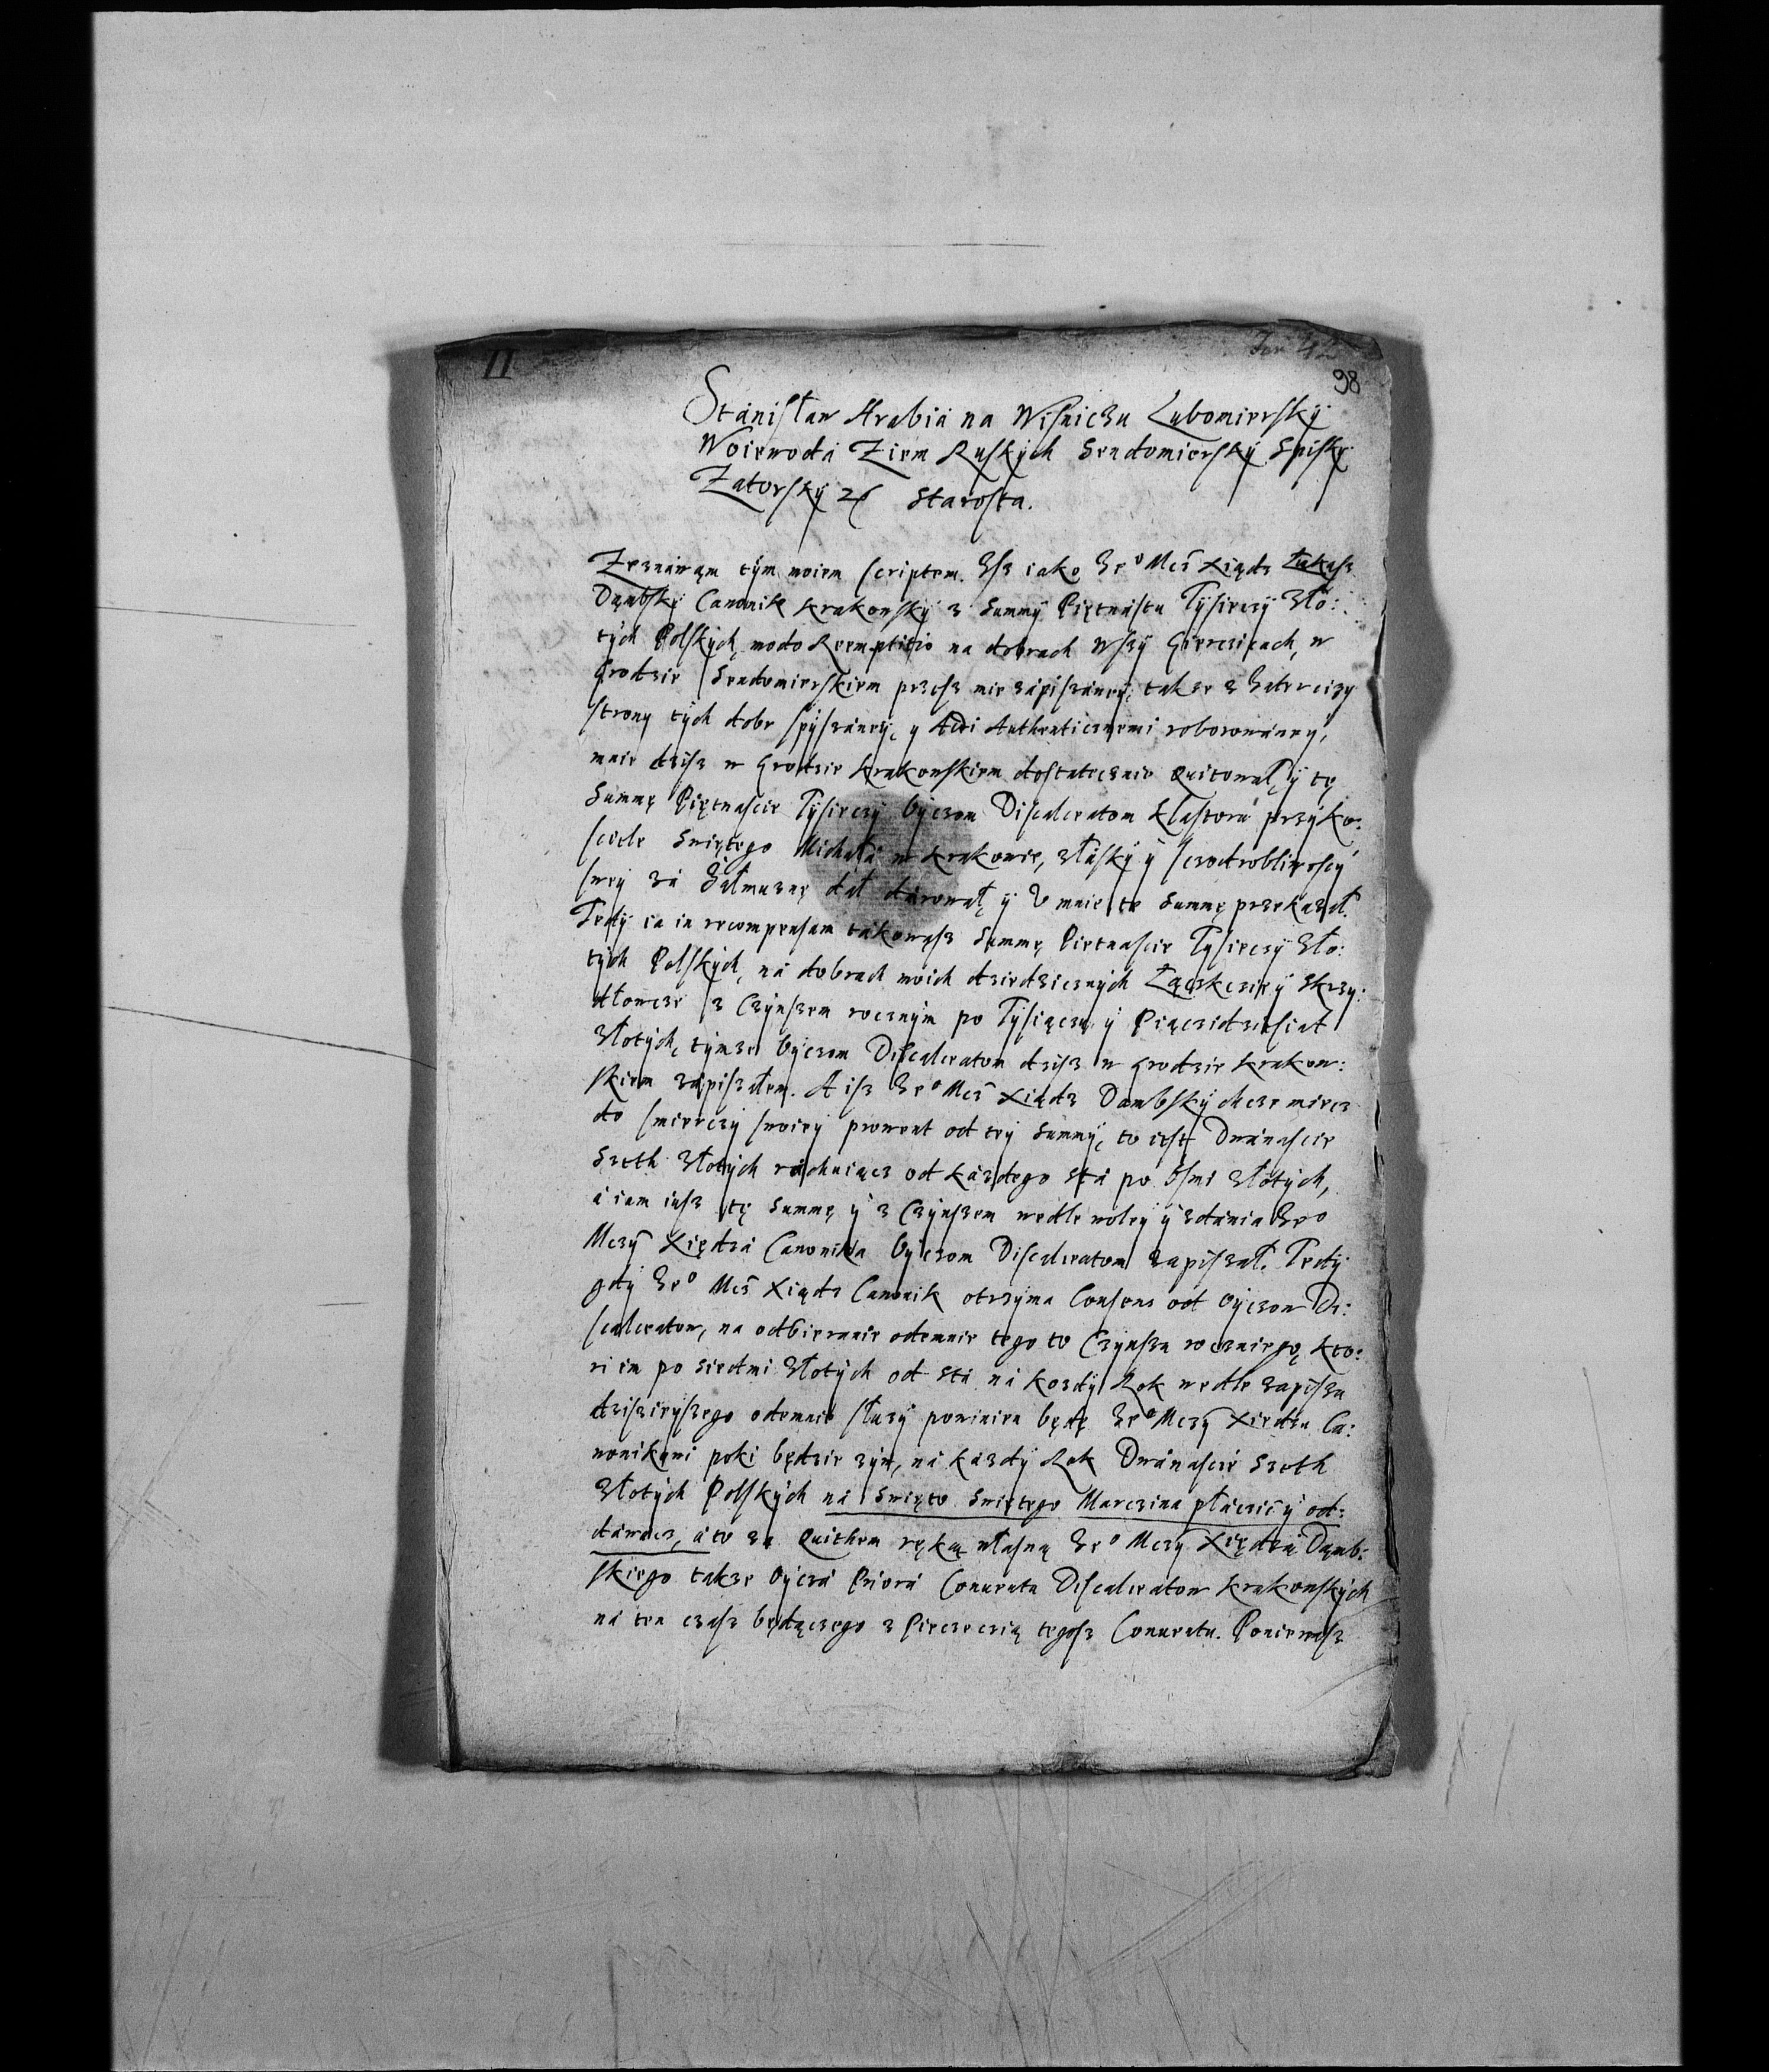 11
42
98
Stanisław Hrabia na Wisniczu Lubomiersky
Woiewoda Ziem Ruskych Sendomiersky Spisky
Zatorsky Starosta.
Zeznawąm tym moiem scriptem. Isz iako Je° Mcz Xiądz Łukasz
Dąmbsky Canonik Krakowsky z Summy Piętnastu Tysieczy Zło:
tych Polskych, modo Reemptitio na dobrach Wszy Gierczicach, w
Grodzie Sendomierskiem przesz mie zapiszaney, takze z Interczizy
strony tych dobr spyszaney, y Acti Authenticznemi roborowaney,
mnie dzisz w Grodzie Krakowskiem dostatecznie Quitował, y tę
Summę Piętnascie Tysieczy Oyczom Discalceatom Klastora przy Ko:
sciele Swiętego Michała w Krakowie, z łasky y sczodrobliwoscy
swey za Jałmuznę dał darował, y U mnie tę Summę przekazał.
Tedy ia in recompensam takowąsz Summę Pietnascie Tysieczy Zło:
tych Polskych, na dobrach moich dziedzicznych Łączkczey y Skrzy:
dłowcze z Czynszem rocznym po Tysiączu y Piączidziesiat
Złotych, tymze Oyczom Discalceatom dzisz w Grodzie Krakow:
skiem zapiszałem. A isz Je° Mcz Xiądz Dambsky chcze miecz
do smierczy swoiey prowent od tey Summy, to iest Dwanascie
Szeth Złotych rachuiącz od kazdego sta po Osmi złotych,
a iam iusz tę Summę y z Czynszem wedle woley y zdania Je°
Mczy Xiędza Canonika Oyczom Discalceatom zapiszał. Tedy
gdy Je° Mcz Xiądz Canonik otrzyma Consens od Oyczow Di:
scalceatow, na odbieranie odemnie tego to Czynszu roczniego, kto:
ri im po siedmi Złotych od sta na kozdy Rok wedle zapiszu
dzisieyszego odemnie słuzy powinien będę Je° Mczy Xiedzu Ca:
nonikowi poki będzie zyw, na kazdy Rok Dwanascie Szeth
Złotych Polskych na Swięto Swiętego Marczina płaczić y od:
dawacz, a to za Quithem ręką własną Je° Mczy Xiędza Dąmb:
skiego takze Oycza Priora Conuentu Discalceatow Krakowskych
na ten czasz będączego z Pieczeczią tegosz Conuentu. Poniewasz